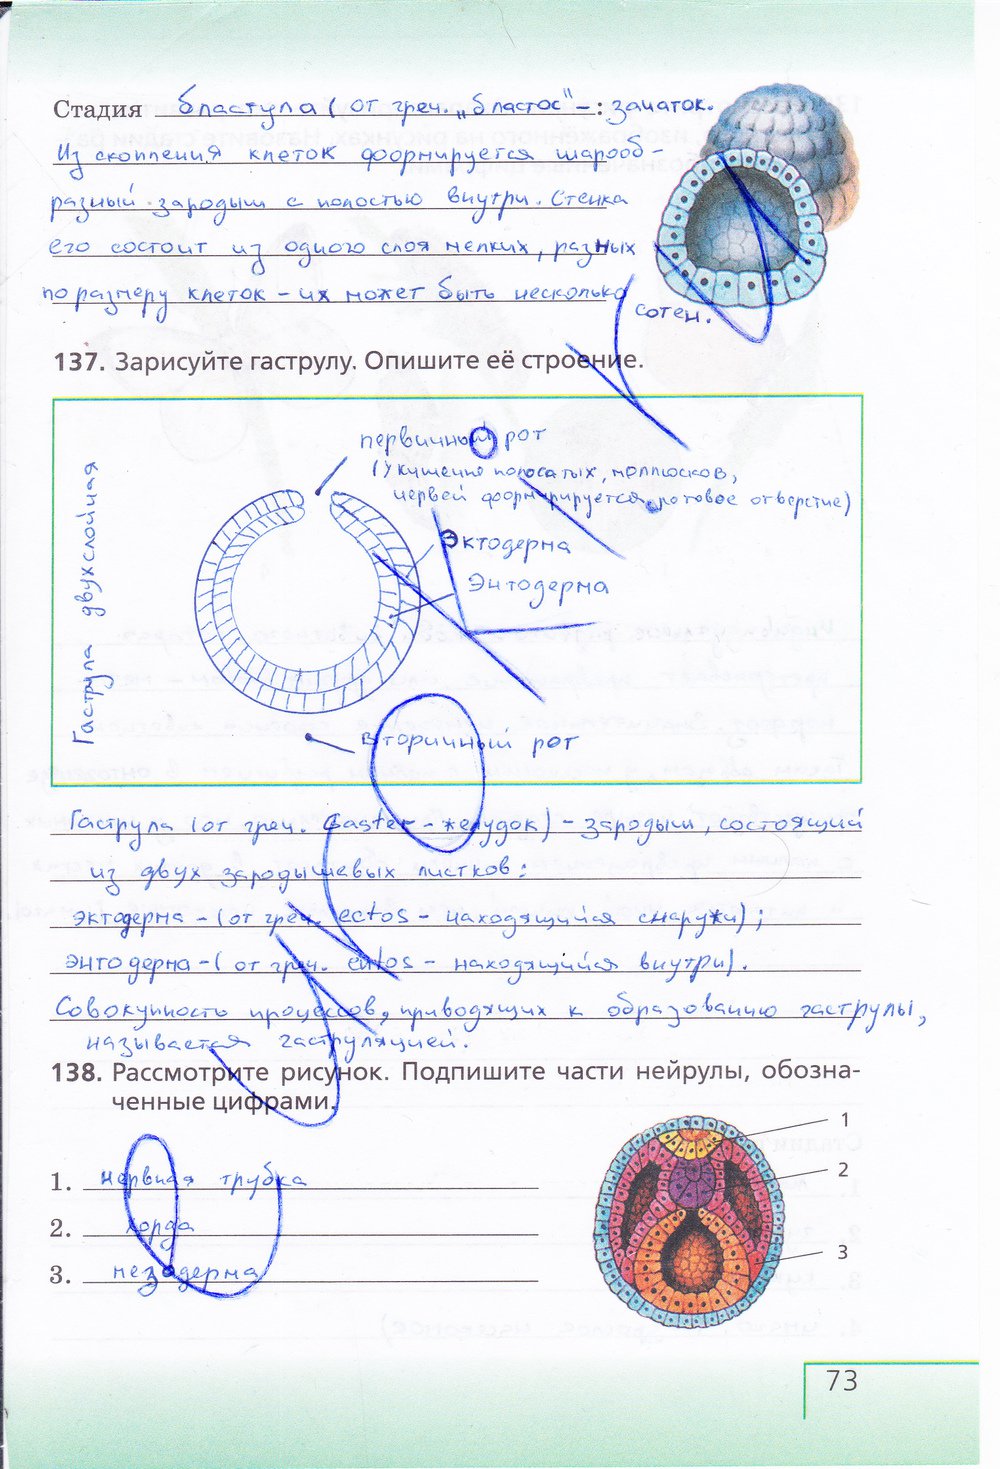 Стадия бластула (от греч. „бластос" – : зачаток.
Из скопления клеток формируется шарооб-
разный зародыш с полостью внутри. Стенка
его состоит из одного слоя мелких, разных
по размеру клеток – их может быть несколько
сотен.
137. Зарисуйте гаструлу. Опишите её строение.
первичный рот
(у кишечнополосатых, моллюсков,
червей формирируется ротовое отверстие)
Эктодерма
Энтодерма
Гаструла двухслойная
вторичный рот
Гаструла (от греч. gaster – желудок) – зародыш, состоящий
из двух зародышевых листков:
эктодерма – (от греч. ectos – находящийся снаружи);
энтодерма – (от греч. entos – находящийся внутри).
Совокупность процессов, приводящих к образованию гаструлы,
называется гаструляцией.
138. Рассмотрите рисунок. Подпишите части нейрулы, обозна-
ченные цифрами.
1. нервная трубка
2. хорда
3. мезодерма
1
2
3
73